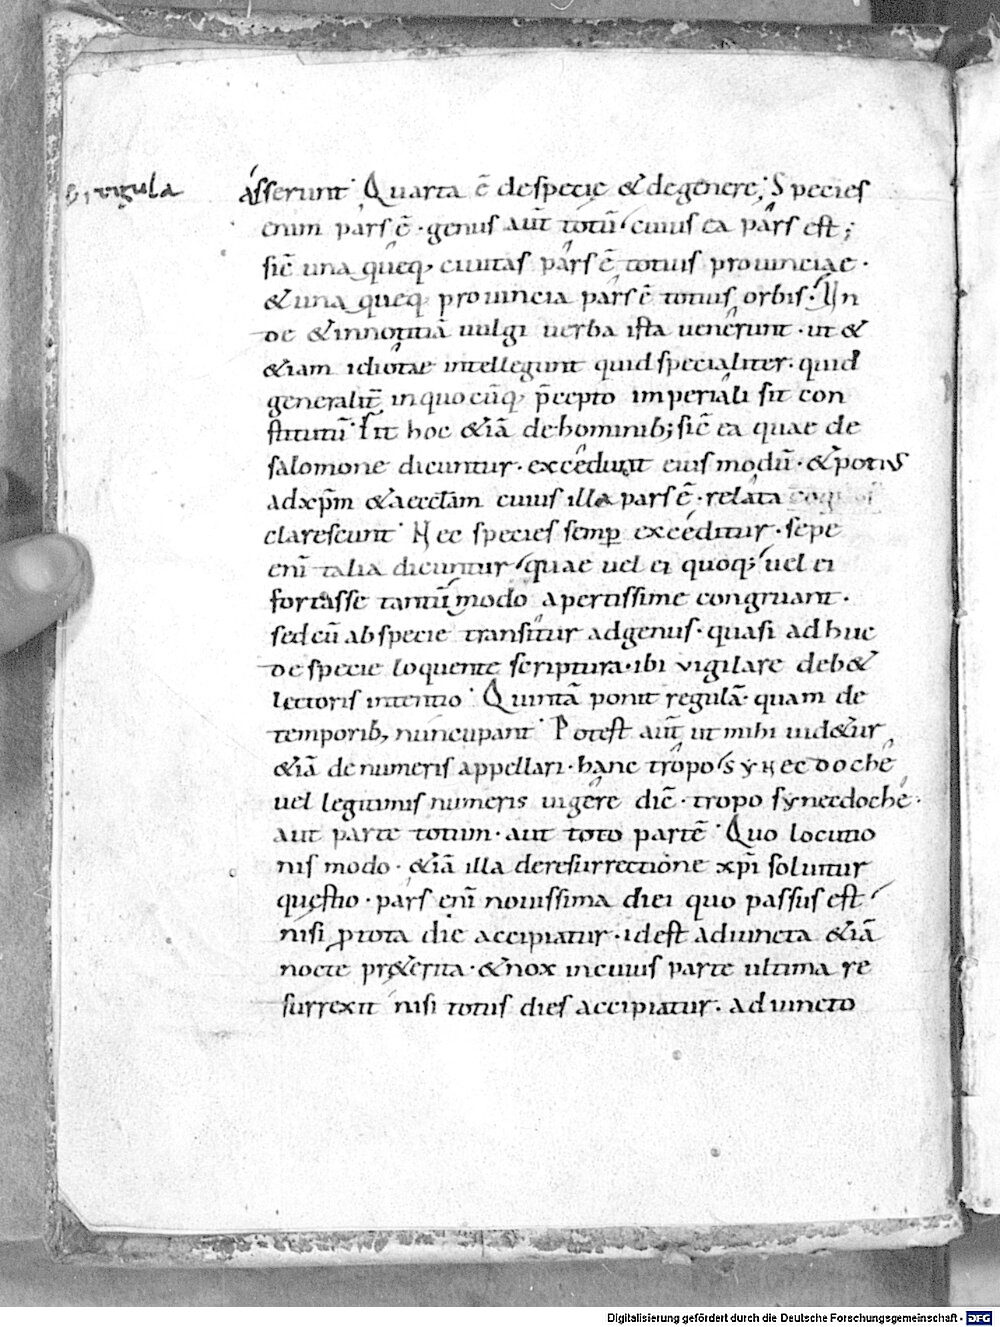 regula
asserunt· Quarta ē despecie & degenere; Species
enim pars ē· genus aūt totū cuius ea pars est;
sic̄ una quęq, ciuitas pars ē totius prouinciae·
& una quęq, prouincia pars ē totius orbis· In
de & innotitiā uulgi uerba ista uenerunt· ut &
&iam idiotae intellegunt quid specialiter· quid
generalit̄ inquocūq, p̄cepto imperiali sit con
stitutū· Fit hoc &iā dehominib; sic̄ ea quae de
salomone dicuntur· excedunt eius modū· & potius
adxp̄m & aeccl̄am cuius illa pars ē· relata
clarescunt· Nec species semp̱ exceditur· sepe
enī talia dicuntur quae uel ei quoq; uel ei
fortasse tantū modo apertissime congruant·
sed cū abspecie transitur adgenus· quasi adhuc
de specie loquente scriptura· ibi uigilare deb&
lectoris intentio· Quintā ponit regulā· quam de
temporib, nuncupant· Potest aūt ut mihi uid&ur
&iā denumeris appellari· hanc tropo synecdoche
uel legitimis numeris uigere dic̄· tropo synecdoche·
aut parte totum· aut toto partē· Quo locutio
nis modo· &iā illa deresurrectione xp̄i soluitur
quęstio· pars enī nouissima diei quo passus est
nisi p̱ tota die accipiatur· idest adiuncta &iā
nocte pr&erita· & nox incuius parte ultima re
surrexit nisi totus dies accipiatur· adiuncto
Digitalisierung gefördert durch die Deutsche Forschungsgemeinschaft - DFG